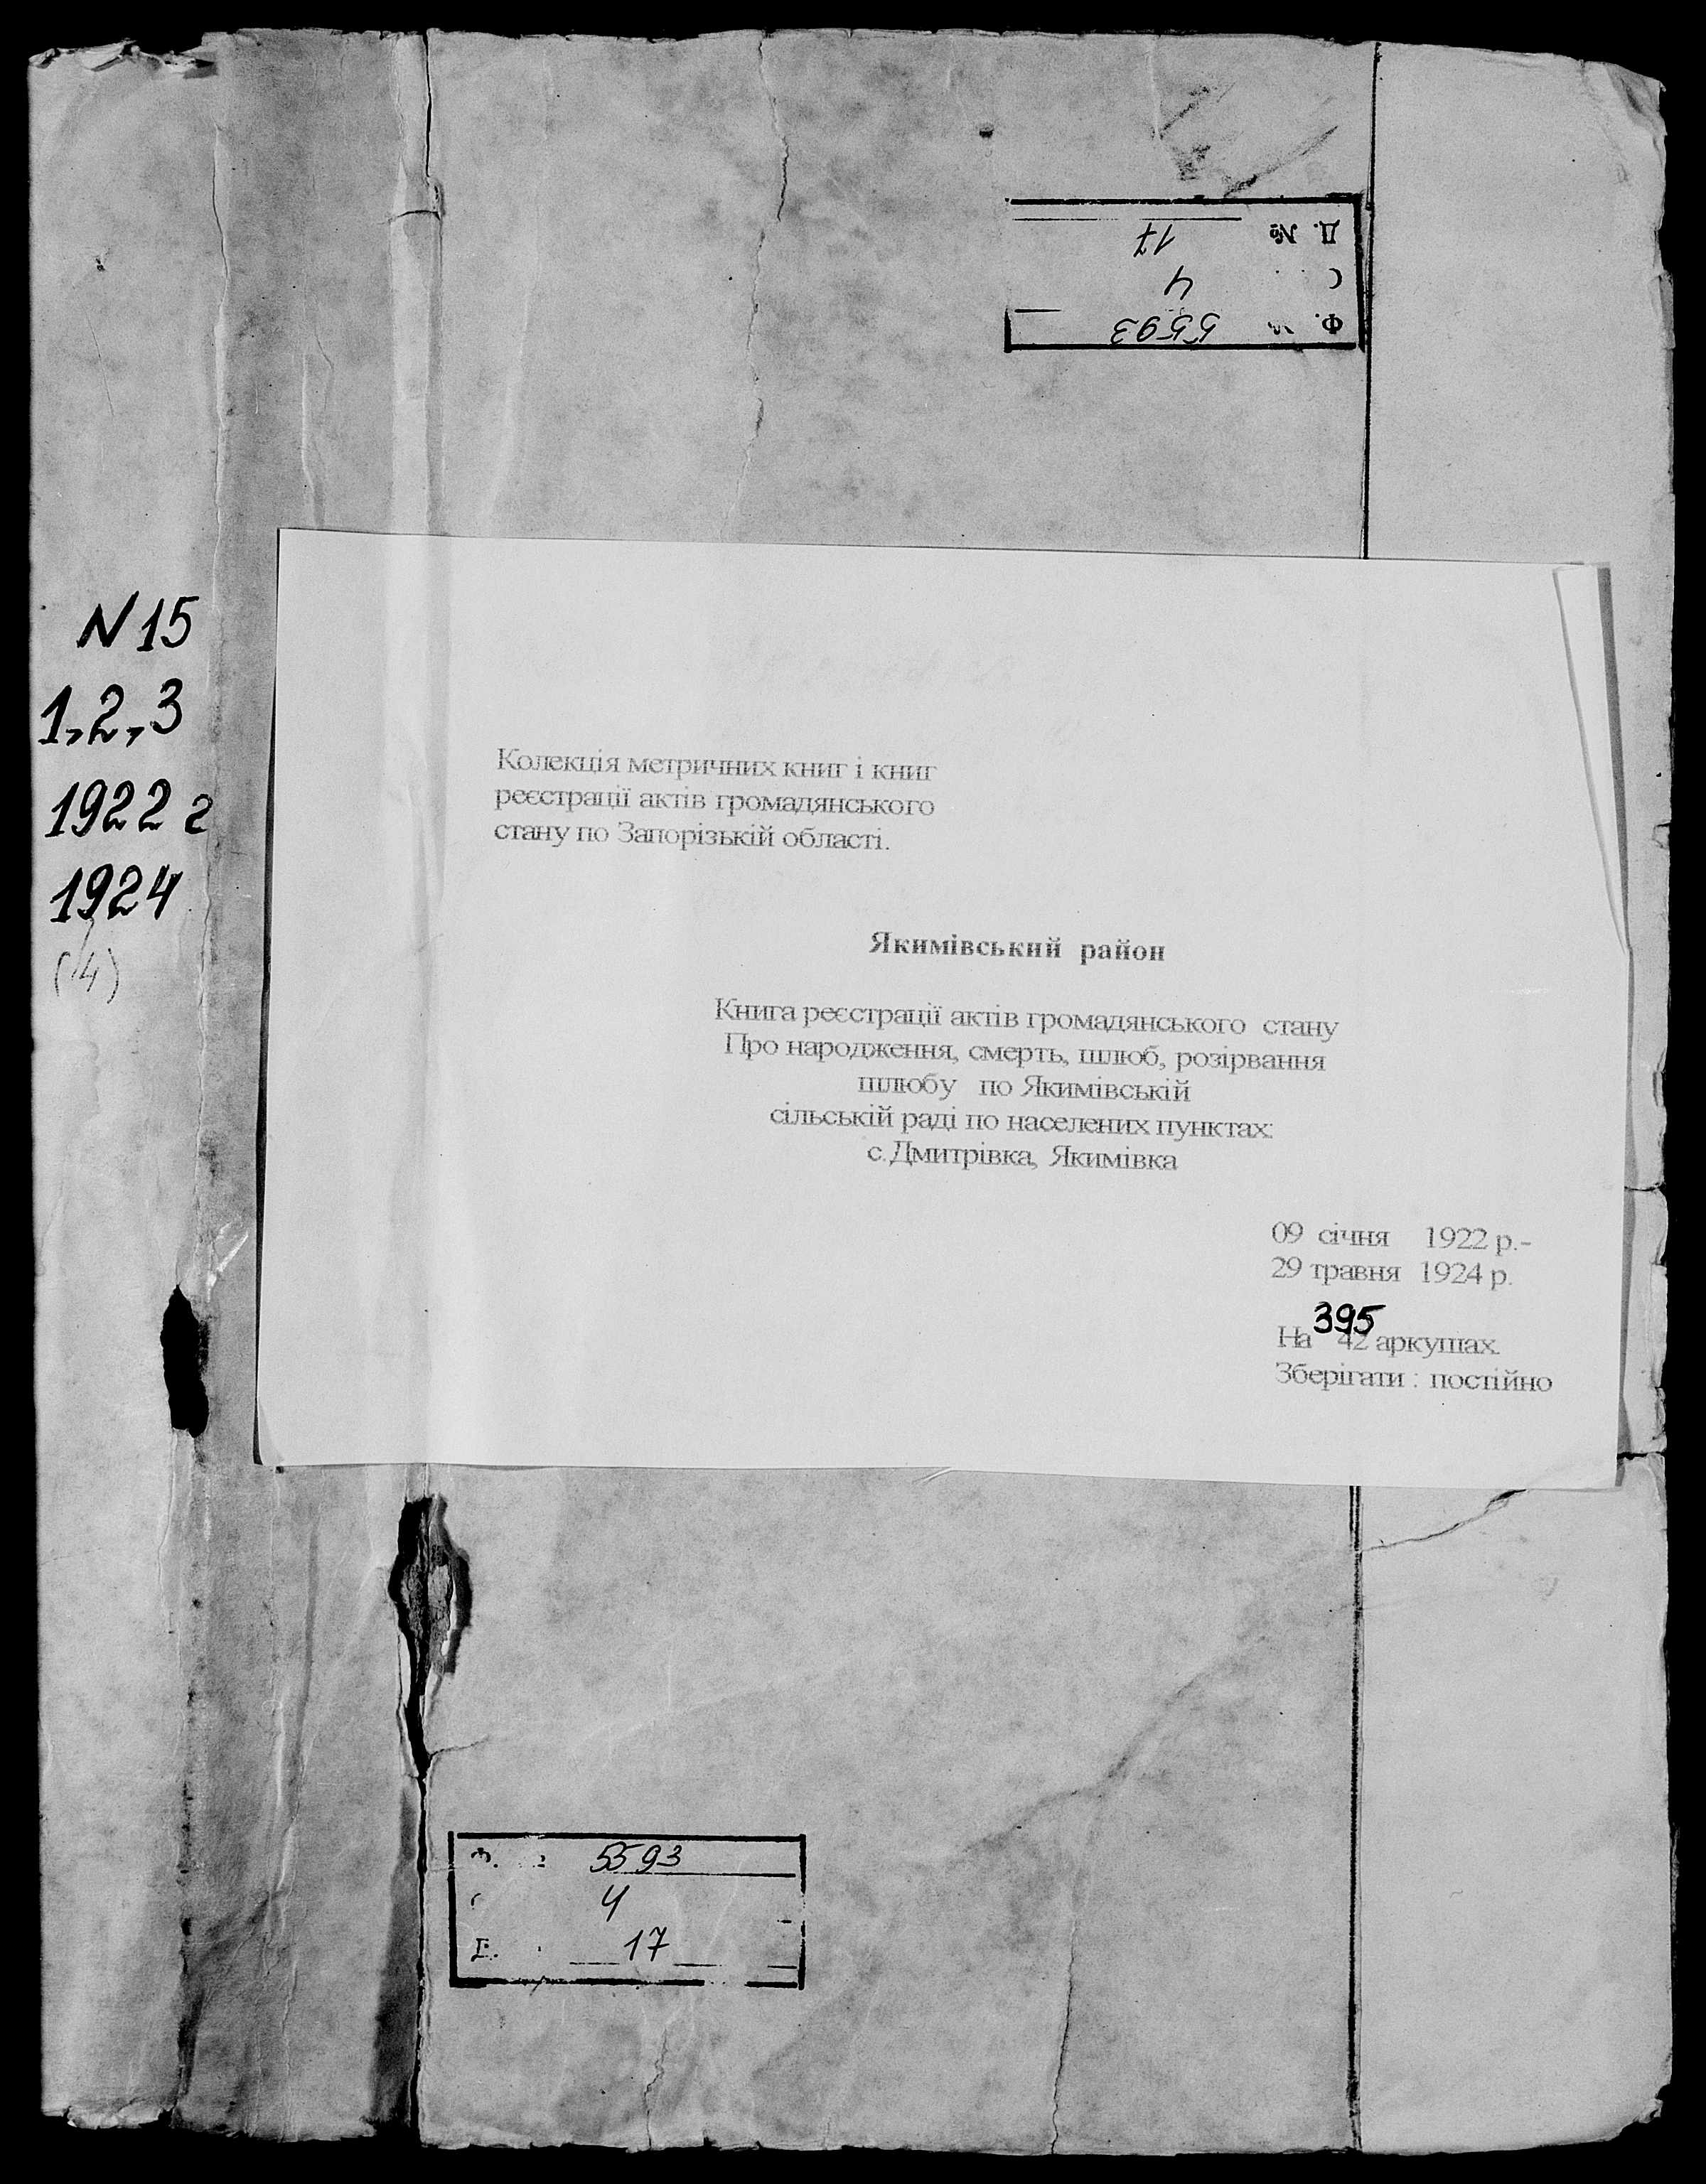 Д. № 17
4
Ф. № 5593
N 15
1,2,3
1922 г
1924
(4)
Колекція метричних книг і книг
реєстрації актів громадянського
стану по Запорізькій області.
Якимівський район
Книга реєстрації актів громадянського стану
Про народження, смерть, шлюб, розірвання
шлюбу по Якимівській
сільській раді по населених пунктах:
с. Дмитрівка, Якимівка
09 січня 1922 р.-
29 травня 1924 р.
395
На 42 аркушах.
Зберігати : постійно
Ф. 5593
4
17